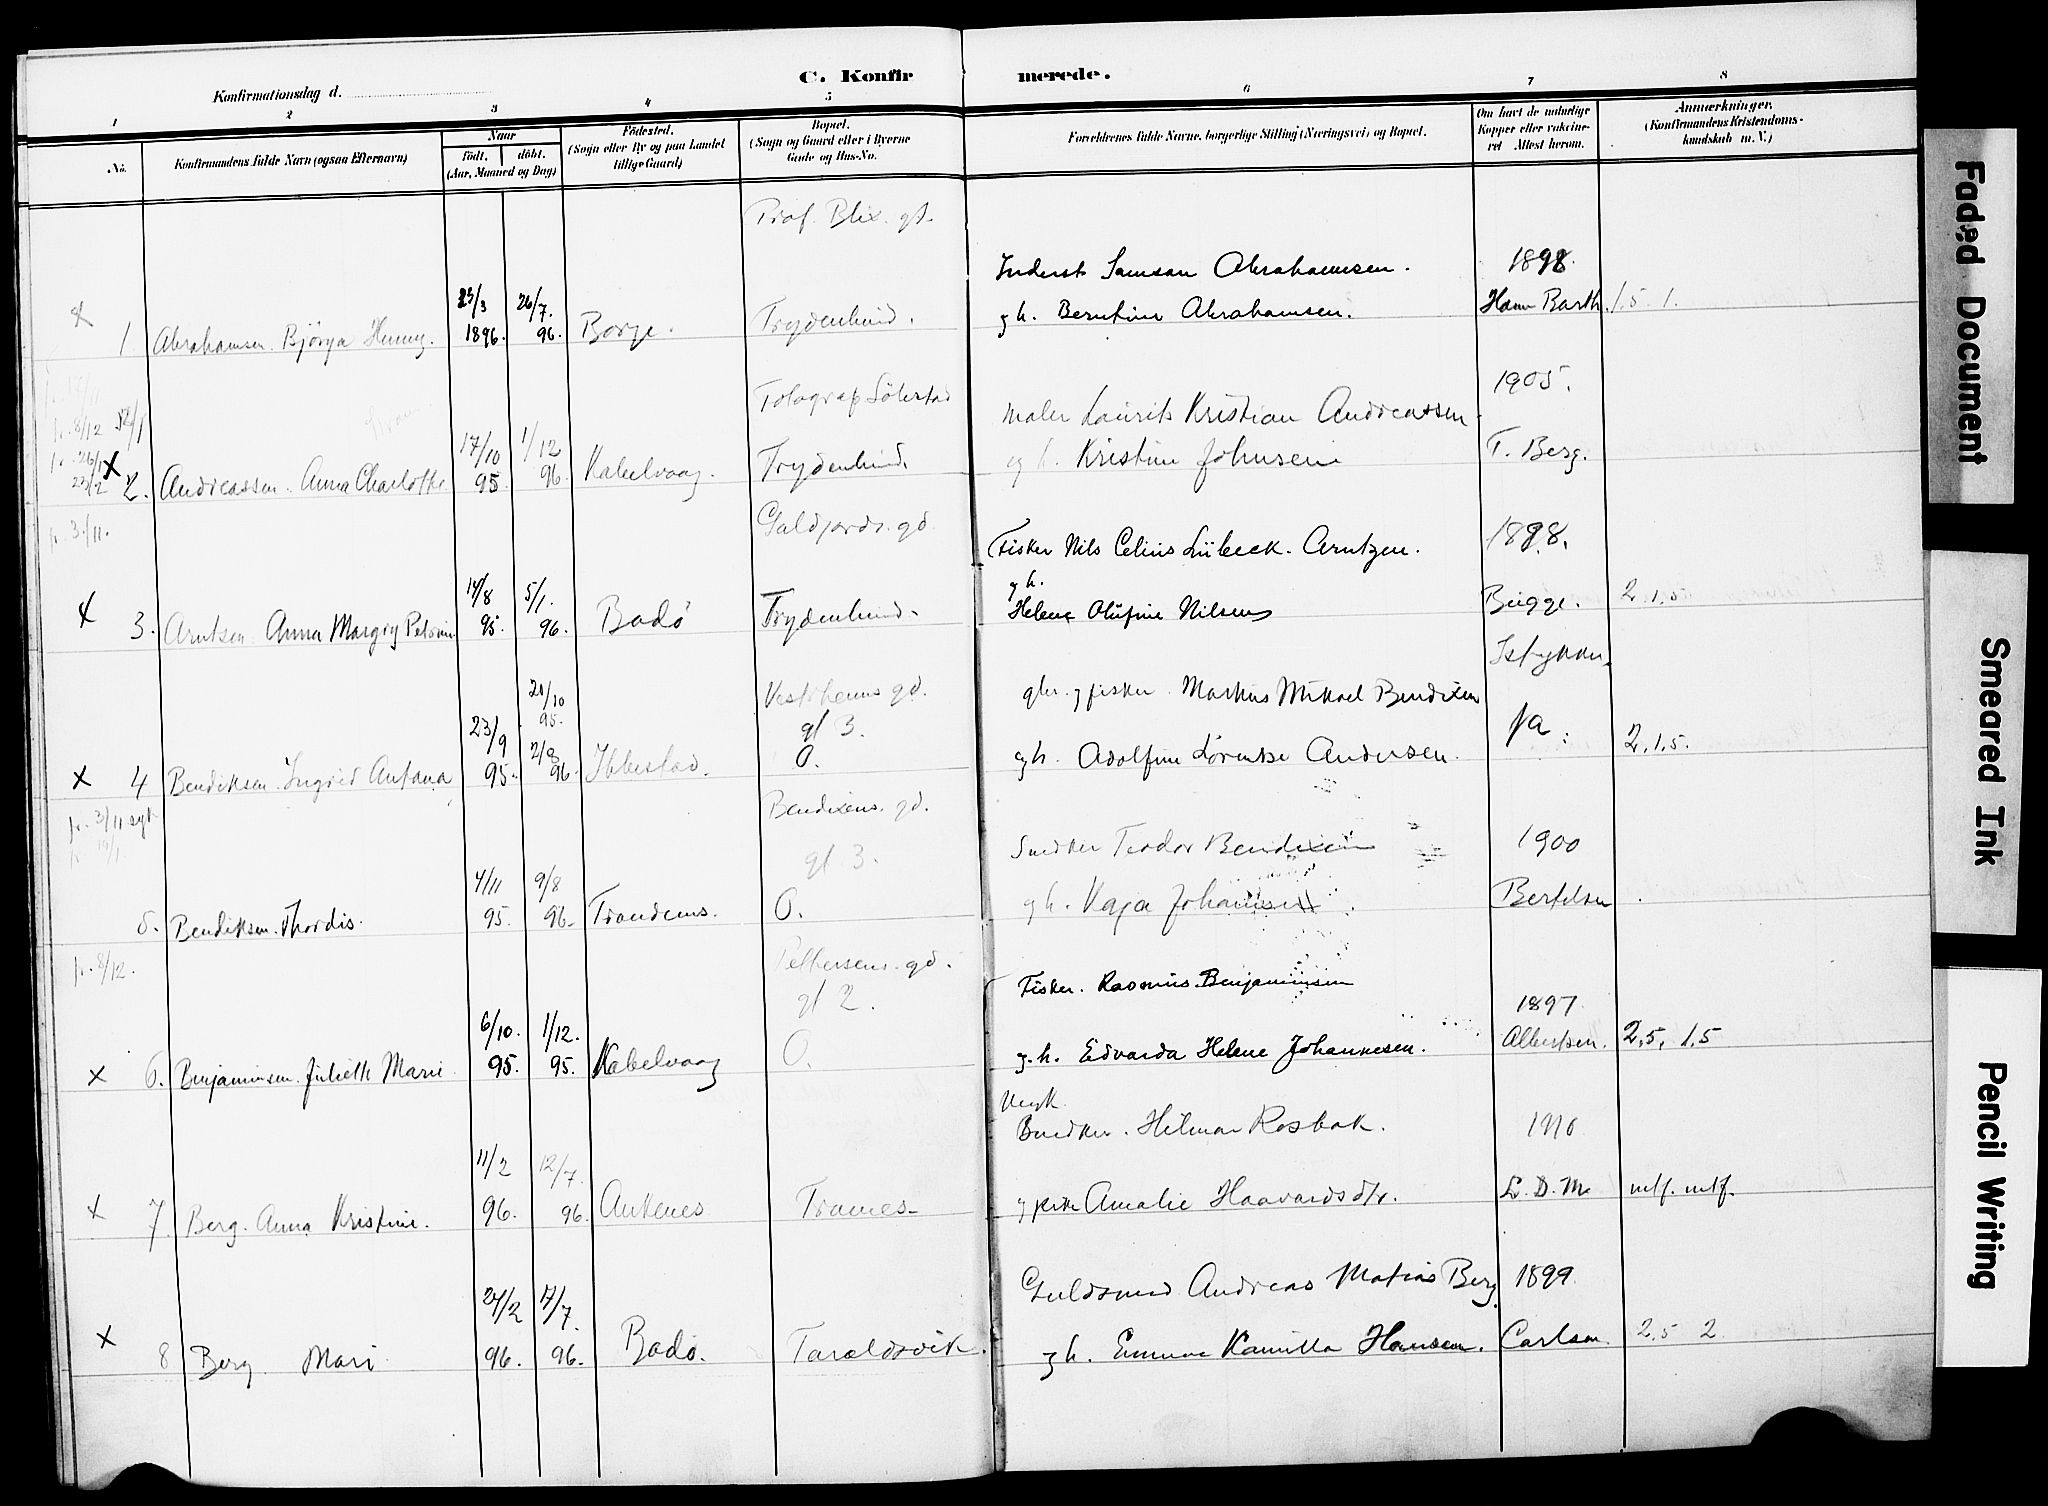 C. Konfirmerede.
Konfirmationsdag d.
1 2 3 4 5 6 7 8
No.
Konfirmandens fulde Navn (ogsaa Efternavn)
Naar
født, døbt.
(Aar, Maaned og Dag)
Fødested.
(Sogn eller By og paa Landet
tillige Gaard)
Bopæl.
(Sogn og Gaard eller i Byerne
Gade og Hus-No.
Forældrenes fulde Navne, borgerlige Stilling (Næringsvei) og Bopæl.
Om havt de naturlige
Kopper eller vaksine-
ret Attest herom.
Anmærkninger.
(Konfirmandens Kristendoms-
kundskab m. V.)
Prof. Blix. gt.
Inderst Samson Abrahamsen. 1898.
x 1 Abrahamsen. Bjørga 23/3 1896. 26/7. 96. Borge. Frydenlund. g h. Berntine Abrahamsen. Barth. 1.5 1.
1905.
Maler Laurits Kristian Andreassen
fr. 8/12
x 2. Andreassen. Anna Charlotte 17/10 95 1/12 96 Kabelvaag. Frydenlund. og h. Kristine Johnsen T. Berg.
fr. 3/11.
Fisker Nils Celius Lübeck. Arntzen. 1898.
g h.
x 3. Arntsen Anna Margry 14/8 95. 5/1. 96. Bodö Frydenlund. Helene Olufine Nilsens Bugge. 2.1.5
Istykker.
20/10 95. Vestrheims gd. gt 3. Markus Mikael Bendixen
x 4 Bendiksen Ingrid Antana 23/9 95. 2/8 96. Ibbestad. O. g h. Adolfine Lorentse Andersen. ja 2.1.5.
fr. 3/11 syk
Bendixens. gd.
gt 3. Snedker Teodor Bendixen 1900
5. Bendiksen. Thordis. 4/11 95. 9/8 96. Trondenes. O. g h. Kaja Johansen. Bertelsen
fr. 8/12.
Pettersens. gd.
gt 2. Fisker. Rasmus. Benjaminsen 1897
x 6. Benjaminsen. Juliette Marie 6/10. 95. 1/12. 95. Kabelvaag O. g. h. Edvarda Helene Johannesen. Albertsen. 2,5, 1,5
Hilmar Rosbak. 1910
x 7. Berg. Anna Kristine. 11/2 96. 12/7. 96. Ankenes Tromes Amalie Haavardsdtr. L. D. M mtf. mtf.
Guldsmed Andreas Matias Berg 1899.
x 8 Berg. Mari 24/2 96. 17/7. 96. Bodö. Taraldsvik. g h. Emma Kamilla Hansen. Carlsen. 2,5 2
Faded Document
Smeared Ink
Pencil Writing